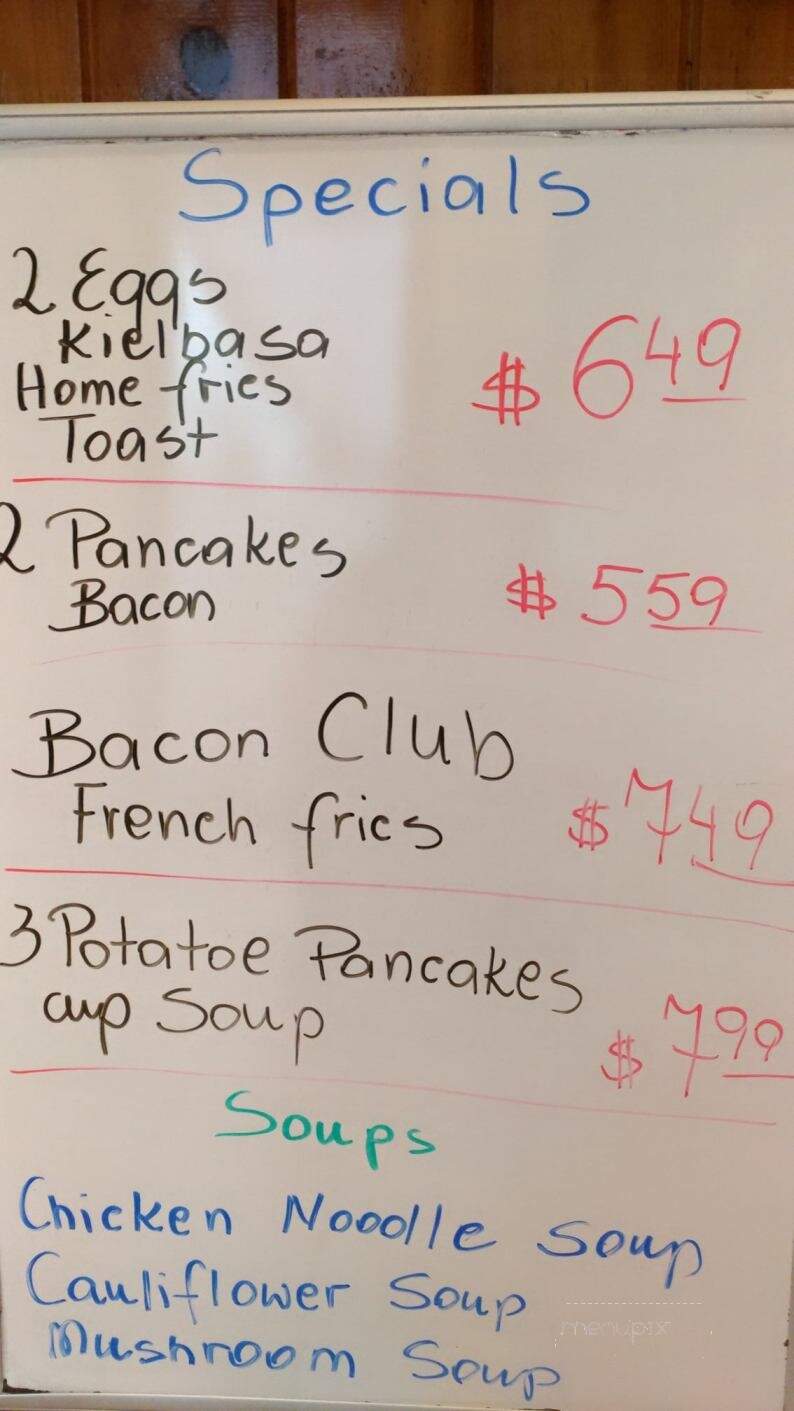 Specials
2 Eggs
Kielbasa
Home fries
Toast
$ 6 49
2 Pancakes
Bacon
$ 5 59
Bacon Club
French fries
$ 7 49
3 Potatoe Pancakes
cup Soup
$ 7 99
Soups
Chicken Noodle Soup
Cauliflower Soup
Mushroom Soup
menupix